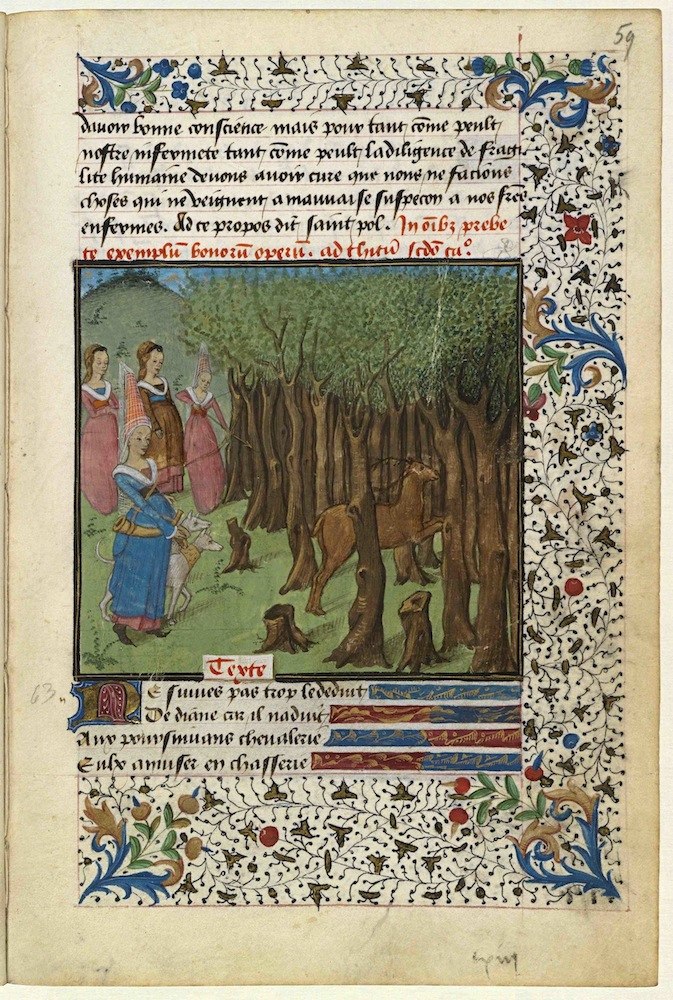 59
davoir bonne conscience mais pour tant cõme peult
nostre infermete tant cõme peult la diligence de fragi
lite humaine devons avoir cure que nous ne facions
choses qui ne veignent a mauvaise suspecon a nos frē
enfermes. Ad ce propos dit saint pol. In oĩbz prebe
te exemplũ bonorũ operũ. ad thitũ scdõ ca°.
Texte
63
Ne suives pas trop le deduit
De diane car il naduit
Aux poursuivans chevalerie
Eulx amuser en chasserie